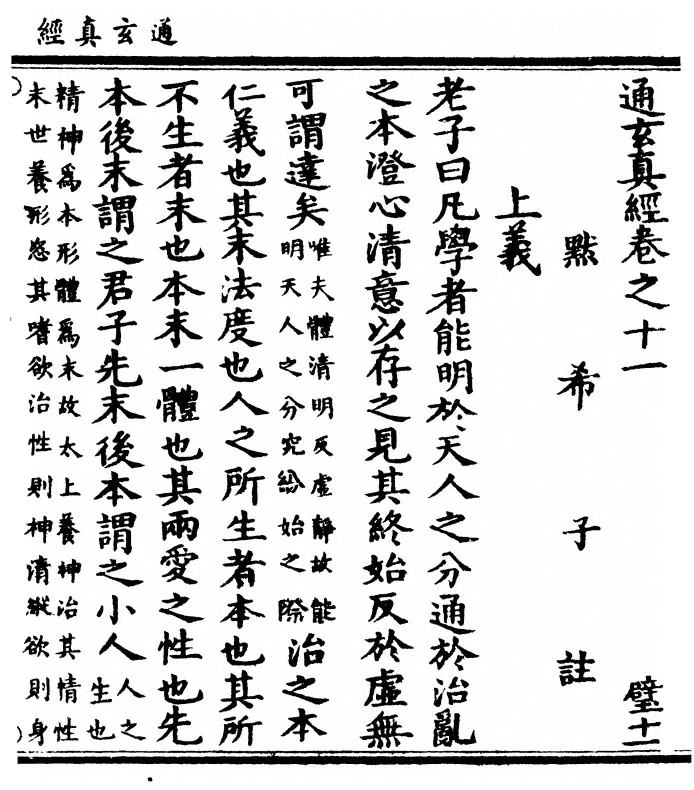 通玄真經
通玄真經卷之十一 璧十一
默希子註
上義
老子曰凡學者能明於天人之分通於治亂
之本澄心清意以存之見其終始反於虛無
可謂達矣唯夫體清明反虛靜故能
明天人之分究紛始之際治之本
仁義也其末法度也人之所生者本也其所
不生者末也本末一體也其兩愛之性也先
本後末謂之君子先末後本謂之小人人之
生也
精神爲本形體爲末故太上養神治其情性
末世養形恣其嗜欲治性則神清縱欲則身